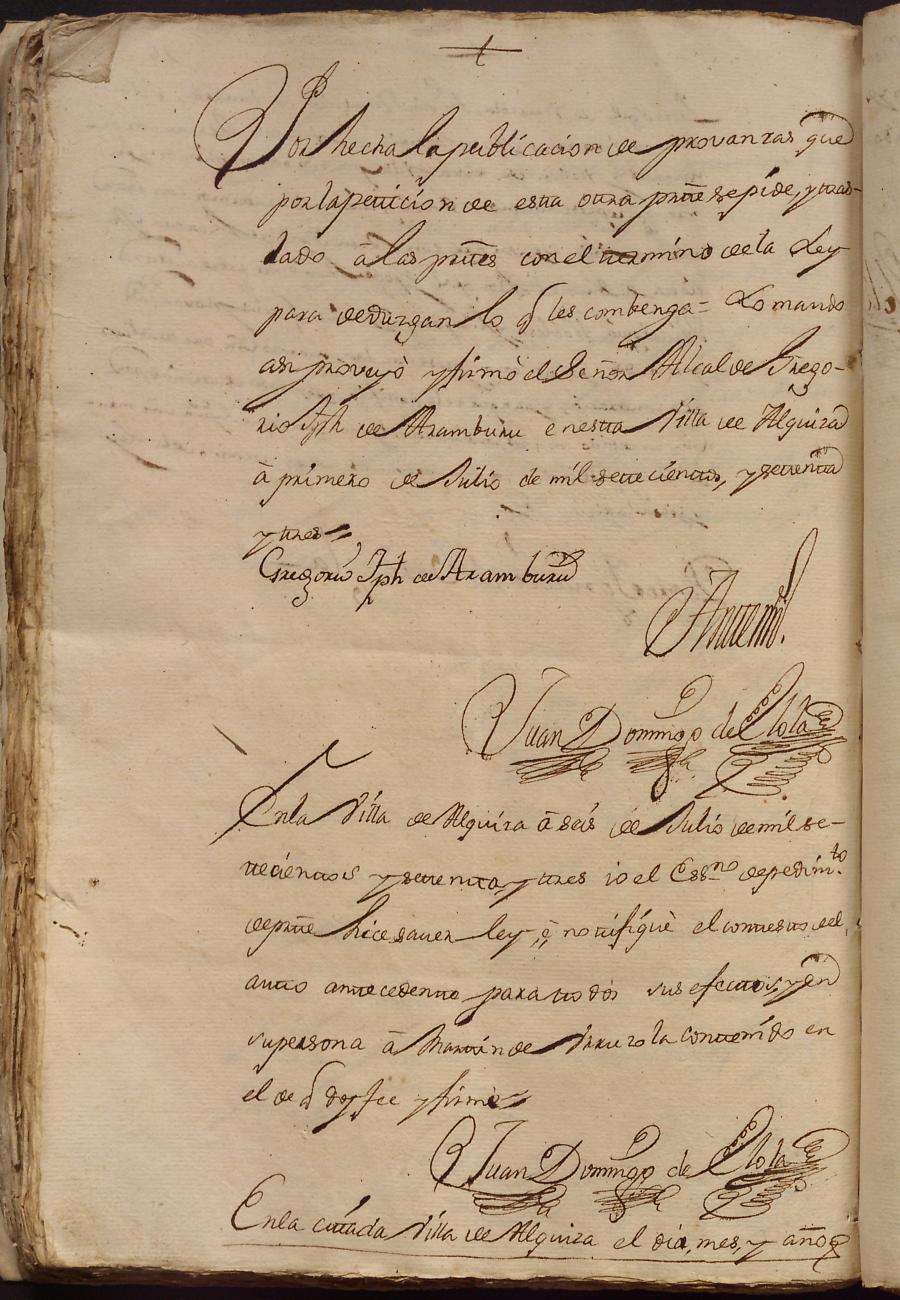 +
Por hecha la publicacion de provanzas que
por la peticion de esta otra prte se pide, y tras-
lado à las prtes con el termino de la Ley
para deduzgan lo q les combenga = Lo mando
asi proveyò y firmò el Señor Alcalde Grego-
rio Jph de Aramburu en esta Villa de Alquiza
à primero de Julio de mil setecientos, y setenta
y tres =
Gregorio Jph de Aramburu
Antemi.
Juan Domingo de Elola
En la Villa de Alquiza à seis de Julio de mil se-
tecientos y setenta, y tres io el Essno de pedimto
de prte hice saver ley, è notifiquè el contesto del
auto antecedente para todos sus efectos, y en
su persona à Martin de Urruzola contenido en
el de q doy fee y firmè =
Juan Domingo de Elola
En la citada Villa de Alquiza el dia, mes, y año